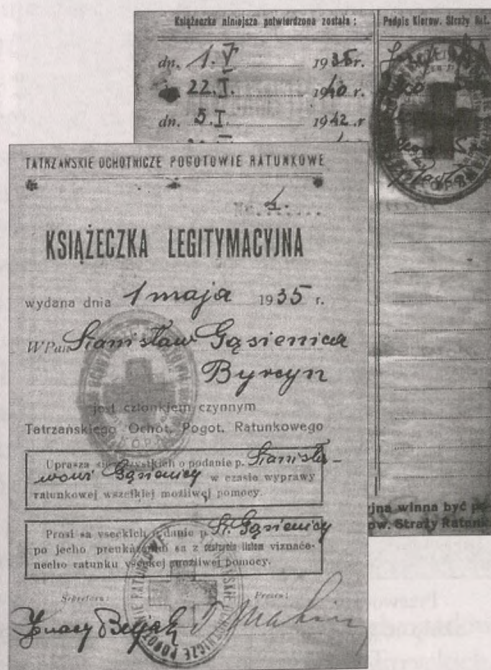 Książeczka niniejsza potwierdzona została:
Podpis Kierow. Straży Rat.
dn. 1. V 1935 r.
22. I. 1940 r.
dn. 5. I. 1942 r
TATRZAŃSKIE OCHOTNICZE POGOTOWIE RATUNKOWE
Nr 4.
KSIĄŻECZKA LEGITYMACYJNA
wydana dnia 1 maja 1935 r.
WPan Stanisław Gąsienica
Byrcyn
jest członkiem czynnym
Tatrzańskiego Ochot. Pogot. Ratunkowego
Uprasza się wszystkich o podanie p. Stanisła-
wowi Gąsienicy w czasie wyprawy
ratunkowej wszelkiej możliwej pomocy.
Prosí sa p. St. Gąsienicy
po jecho sa z
necho ratunku možliwej pomocy.
Sekretarz: Prezes:
Ignacy
jna winna być po
ow. Straży Ratunk